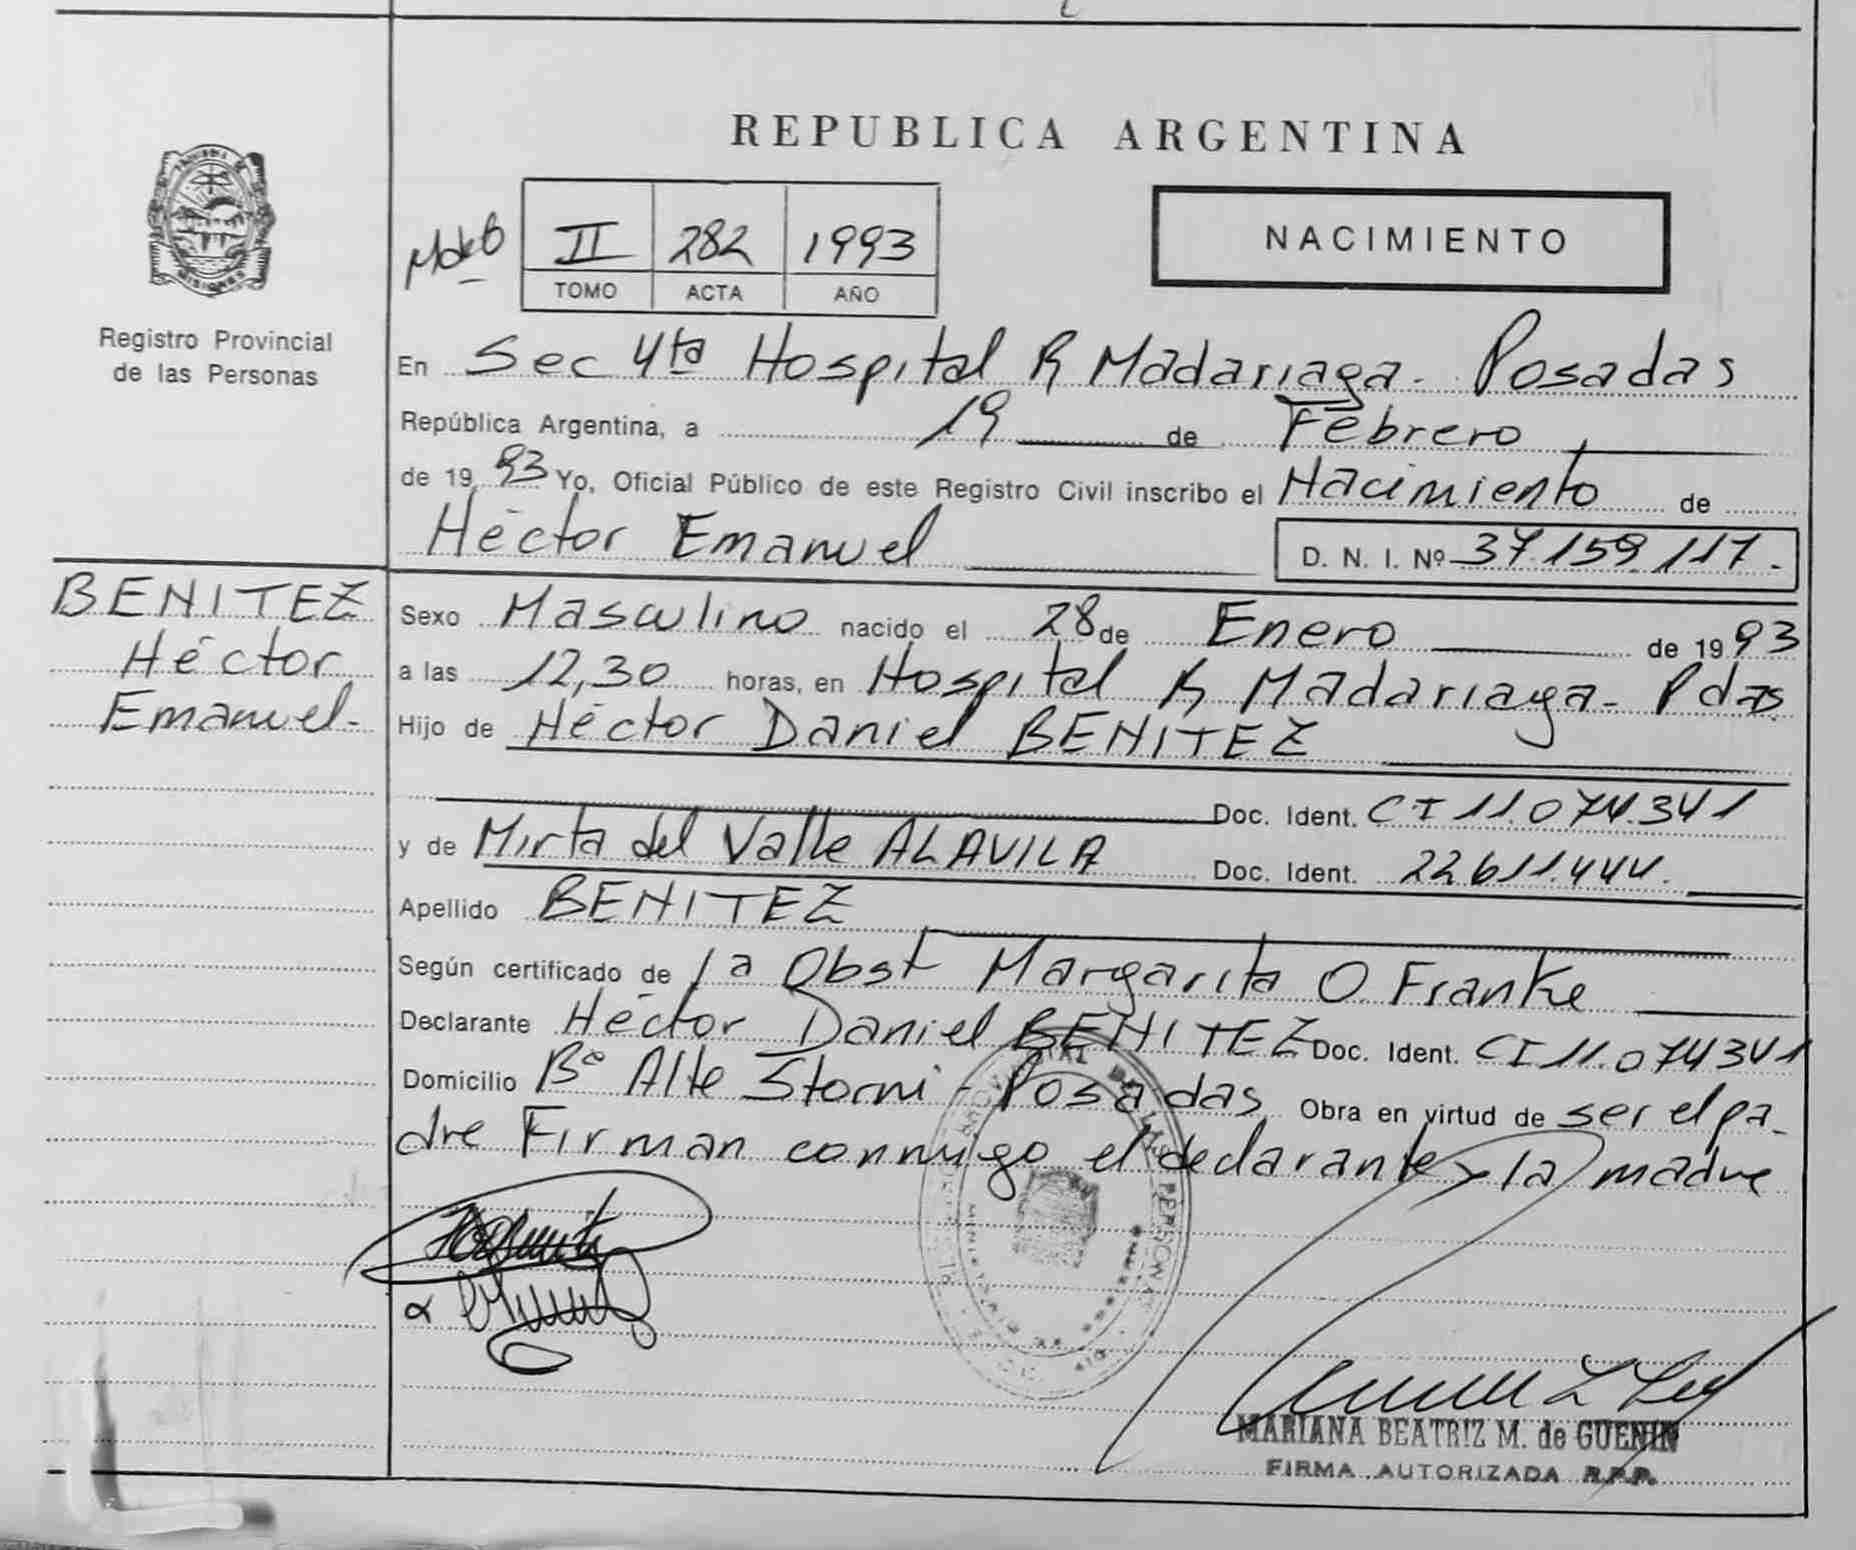 REPUBLICA ARGENTINA
II 282 1993
TOMO ACTA AÑO
NACIMIENTO
PROVINCIA DE MISIONES
Registro Provincial
de las Personas
En Sec 4ta Hospital R Madariaga - Posadas
República Argentina, a 19 de Febrero
de 19 93 Yo, Oficial Público de este Registro Civil inscribo el Nacimiento de
Héctor Emanuel D. N. I. Nº 37.159.117.
BENITEZ
Héctor
Emanuel-
Sexo Masculino nacido el 28 de Enero de 19 93
a las 12,30 horas, en Hospital R Madariaga - Pdas
Hijo de Héctor Daniel BENITEZ
Doc. Ident. CI 11.074.341
y de Mirta del Valle ALAVILA Doc. Ident. 22.611.444.
Apellido BENITEZ
Según certificado de la Obst Margarita O. Franke
Declarante Héctor Daniel BENITEZ Doc. Ident. CI 11.074341
Domicilio Bº Alte Storni - Posadas Obra en virtud de ser el pa-
dre Firman conmigo el declarante y la madre
MARIANA BEATRIZ M. de GUENIN
FIRMA AUTORIZADA R.P.P.